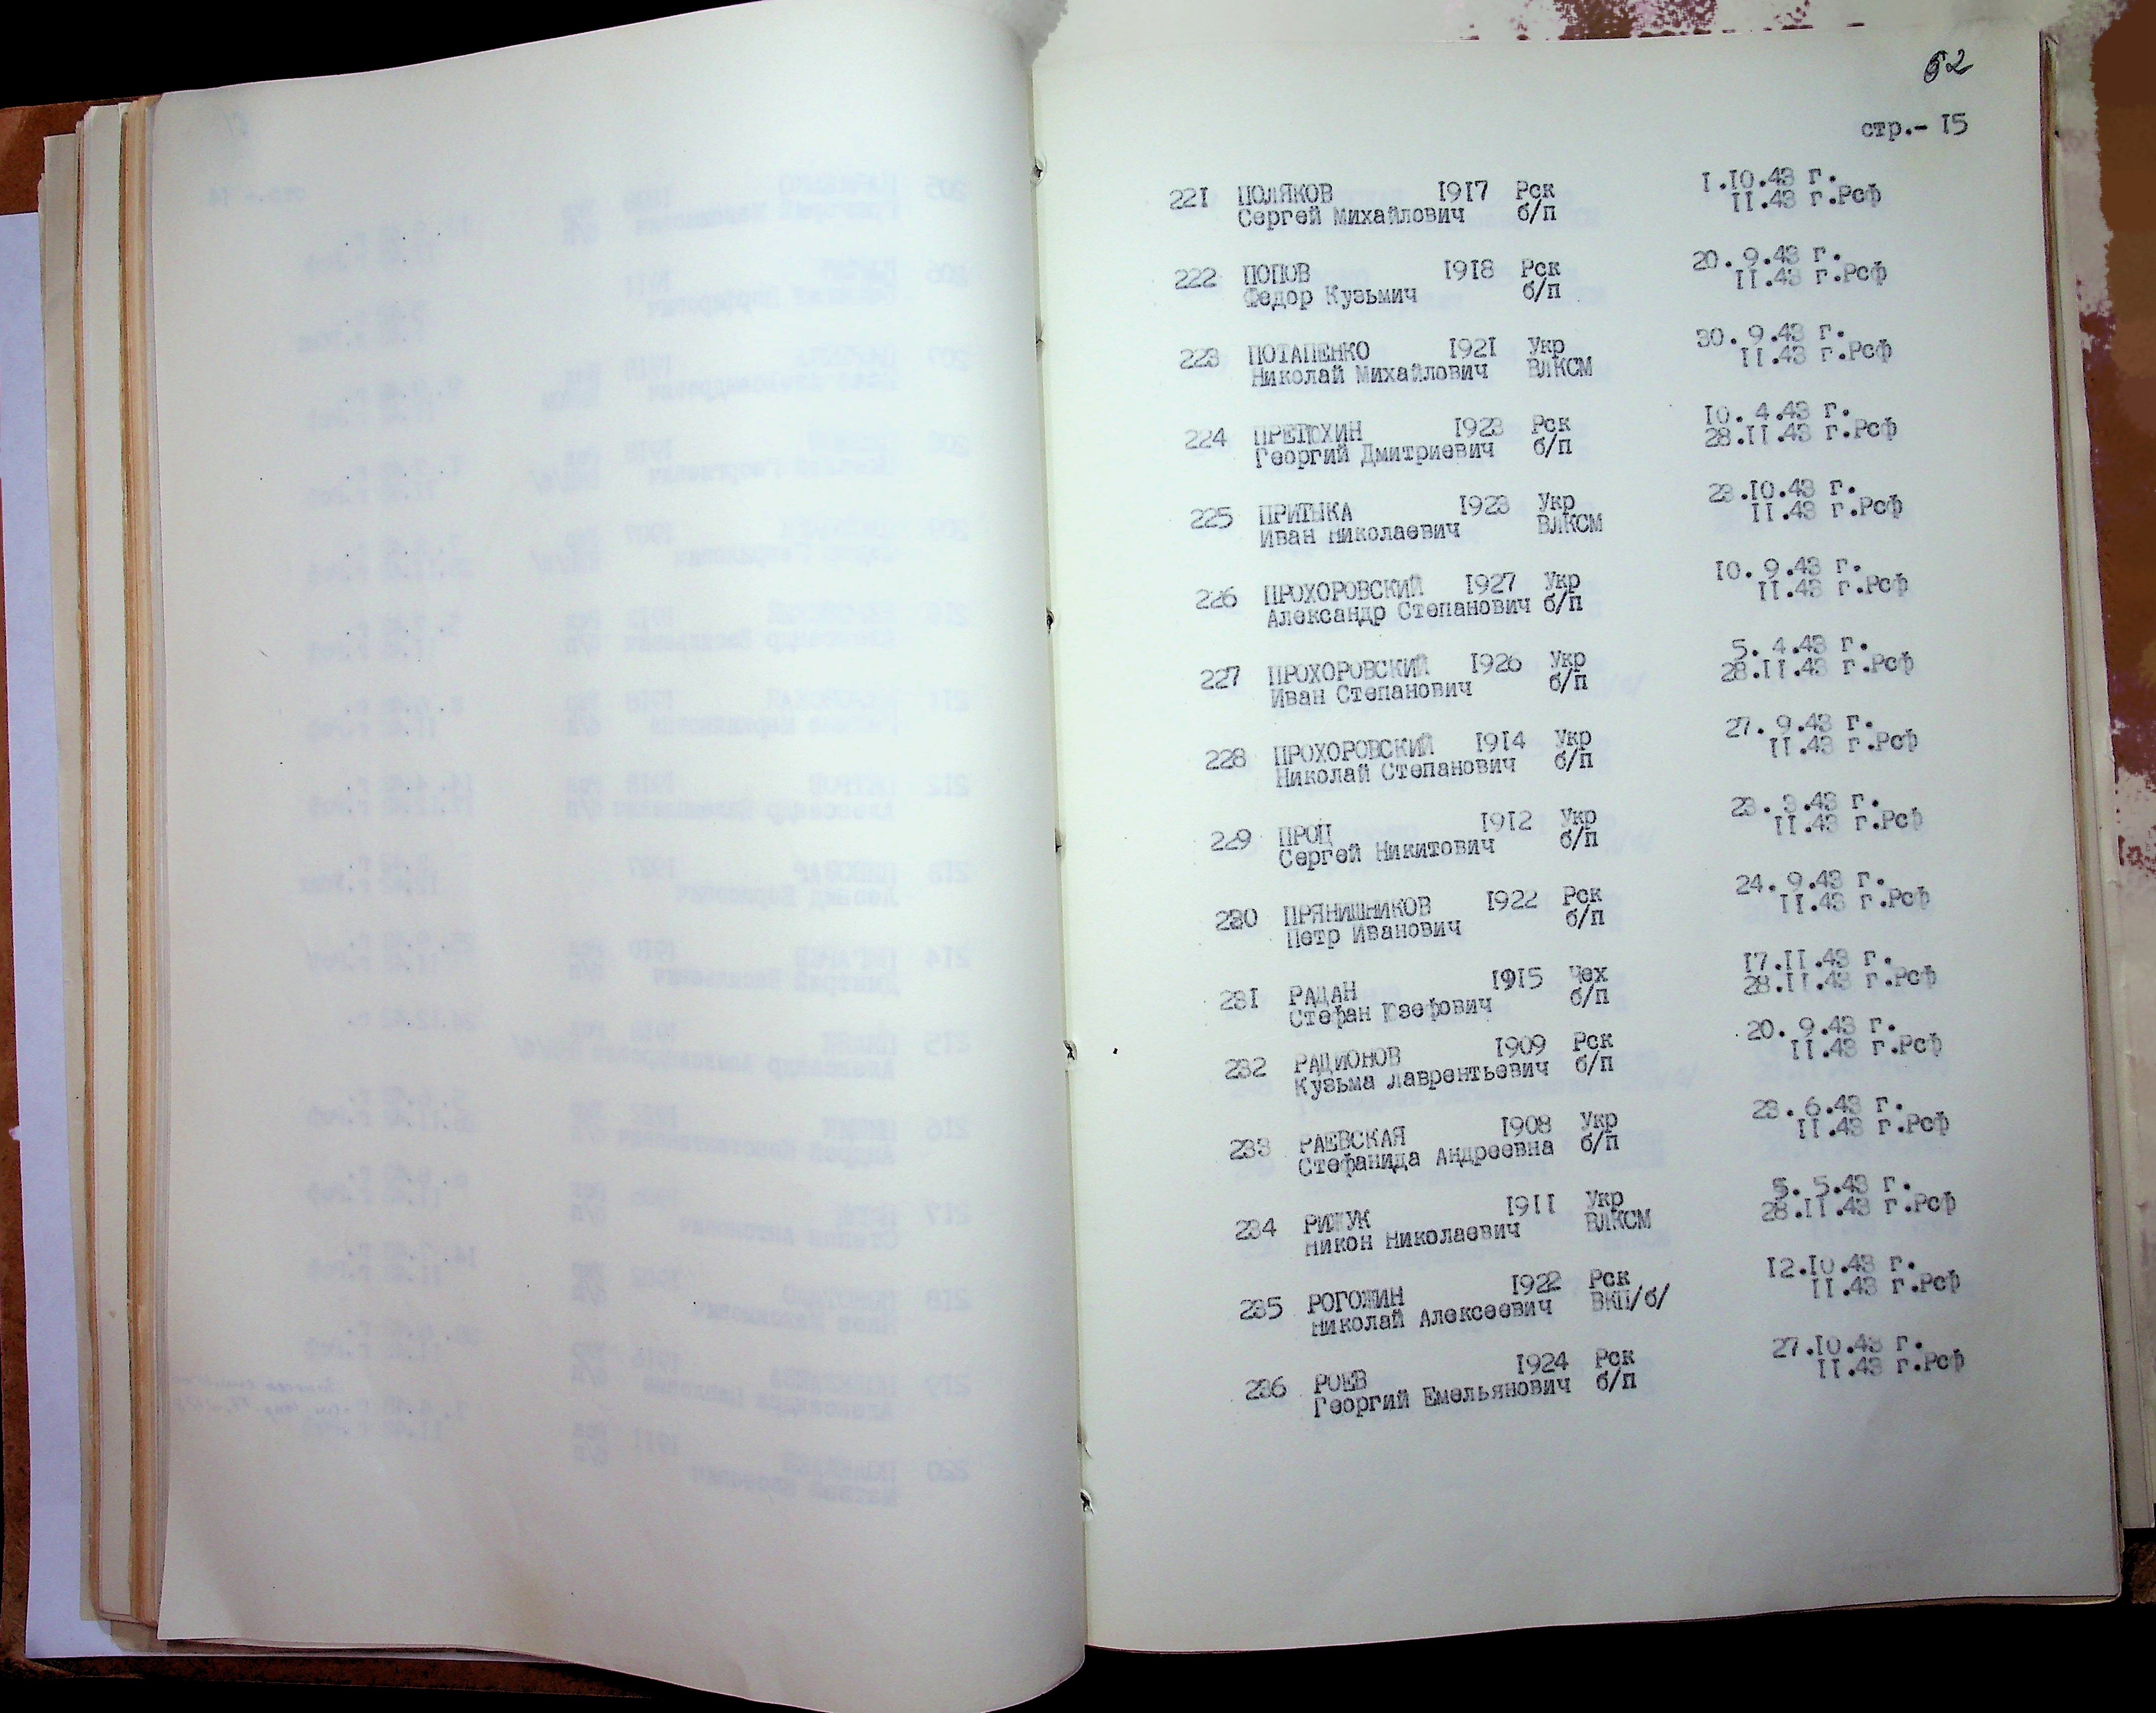 62
стр.- 15
221 ПОЛЯКОВ 1917 Рск 1.10.43 г.
Сергей Михайлович б/п 11.43 г.Рсф
222 ПОПОВ 1918 Рск 20. 9.43 г.
Федор Кузьмич б/п 11.43 г.Рсф
223 ПОТАПЕНКО 1921 Укр 30. 9.43 г.
Николай Михайлович ВЛКСМ 11.43 г.Рсф
224 ПРЕПОХИН 1923 Рск 10. 4.43 г.
Георгий Дмитриевич б/п 28.11.43 г.Рсф
225 ПРИТЫКА 1923 Укр 23.10.43 г.
Иван Николаевич ВЛКСМ 11.43 г.Рсф
226 ПРОХОРОВСКИЙ 1927 Укр 10. 9.43 г.
Александр Степанович б/п 11.43 г.Рсф
227 ПРОХОРОВСКИЙ 1926 Укр 5. 4.43 г.
Иван Степанович б/п 28.11.43 г.Рсф
228 ПРОХОРОВСКИЙ 1914 Укр 27. 9.43 г.
Николай Степанович б/п 11.43 г.Рсф
229 ПРОЦ 1912 Укр 23. 3.43 г.
Сергей Никитович б/п 11.43 г.Рсф
230 ПРЯНИШНИКОВ 1922 Рск 24. 9.43 г.
Петр Иванович б/п 11.43 г.Рсф
231 РАДАН 1915 Чех 17.11.43 г.
Стефан Юзефович б/п 28.11.43 г.Рсф
232 РАДИОНОВ 1909 Рск 20. 9.43 г.
Кузьма Лаврентьевич б/п 11.43 г.Рсф
233 РАЕВСКАЯ 1908 Укр 23. 6.43 г.
Стефанида Андреевна б/п 11.43 г.Рсф
234 РИЖУК 1911 Укр 5. 5.43 г.
Никон Николаевич ВЛКСМ 28.11.43 г.Рсф
235 РОГОЖИН 1922 Рск 12.10.43 г.
Николай Алексеевич ВКП/б/ 11.43 г.Рсф
236 РОЕВ 1924 Рск 27.10.43 г.
Георгий Емельянович б/п 11.43 г.Рсф